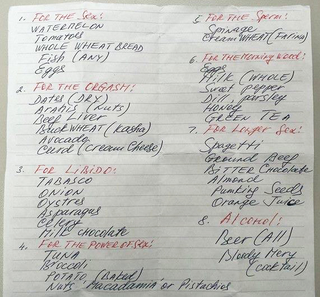 1. FOR THE Sex:
WATERMELON
Tomatoes
WHOLE WHEAT BREAD
Fish (ANY)
Eggs
2. FOR THE ORGASM:
Dates (DRY)
Arabis (Nuts)
Beef Liver
Buck WHEAT (Kasha)
Avocado
Curd (Cream Cheese)
3. FOR LIBIDO:
TABASCO
ONION
Oystres
Asparagus
Celery
Milk Chocolate
4. FOR THE POWER OF SEX:
TUNA
Broccoli
POTATO (Baked)
Nuts "Macadamia" or Pistachios
5. FOR THE Sperm:
Spinage
Cream WHEAT (Farina)
6. FOR THE Morning Wood:
Eggs
Milk (WHOLE)
Sweet pepper
Dill, parsley
Honey
GREEN TEA
7. FOR Longer Sex:
Spagetti
Ground Beef
BITTER Chocolate
Almond
Pumking Seeds
Orange Juice
8. Alcohol:
Beer (All)
Bloody Mery
(Cocktail)